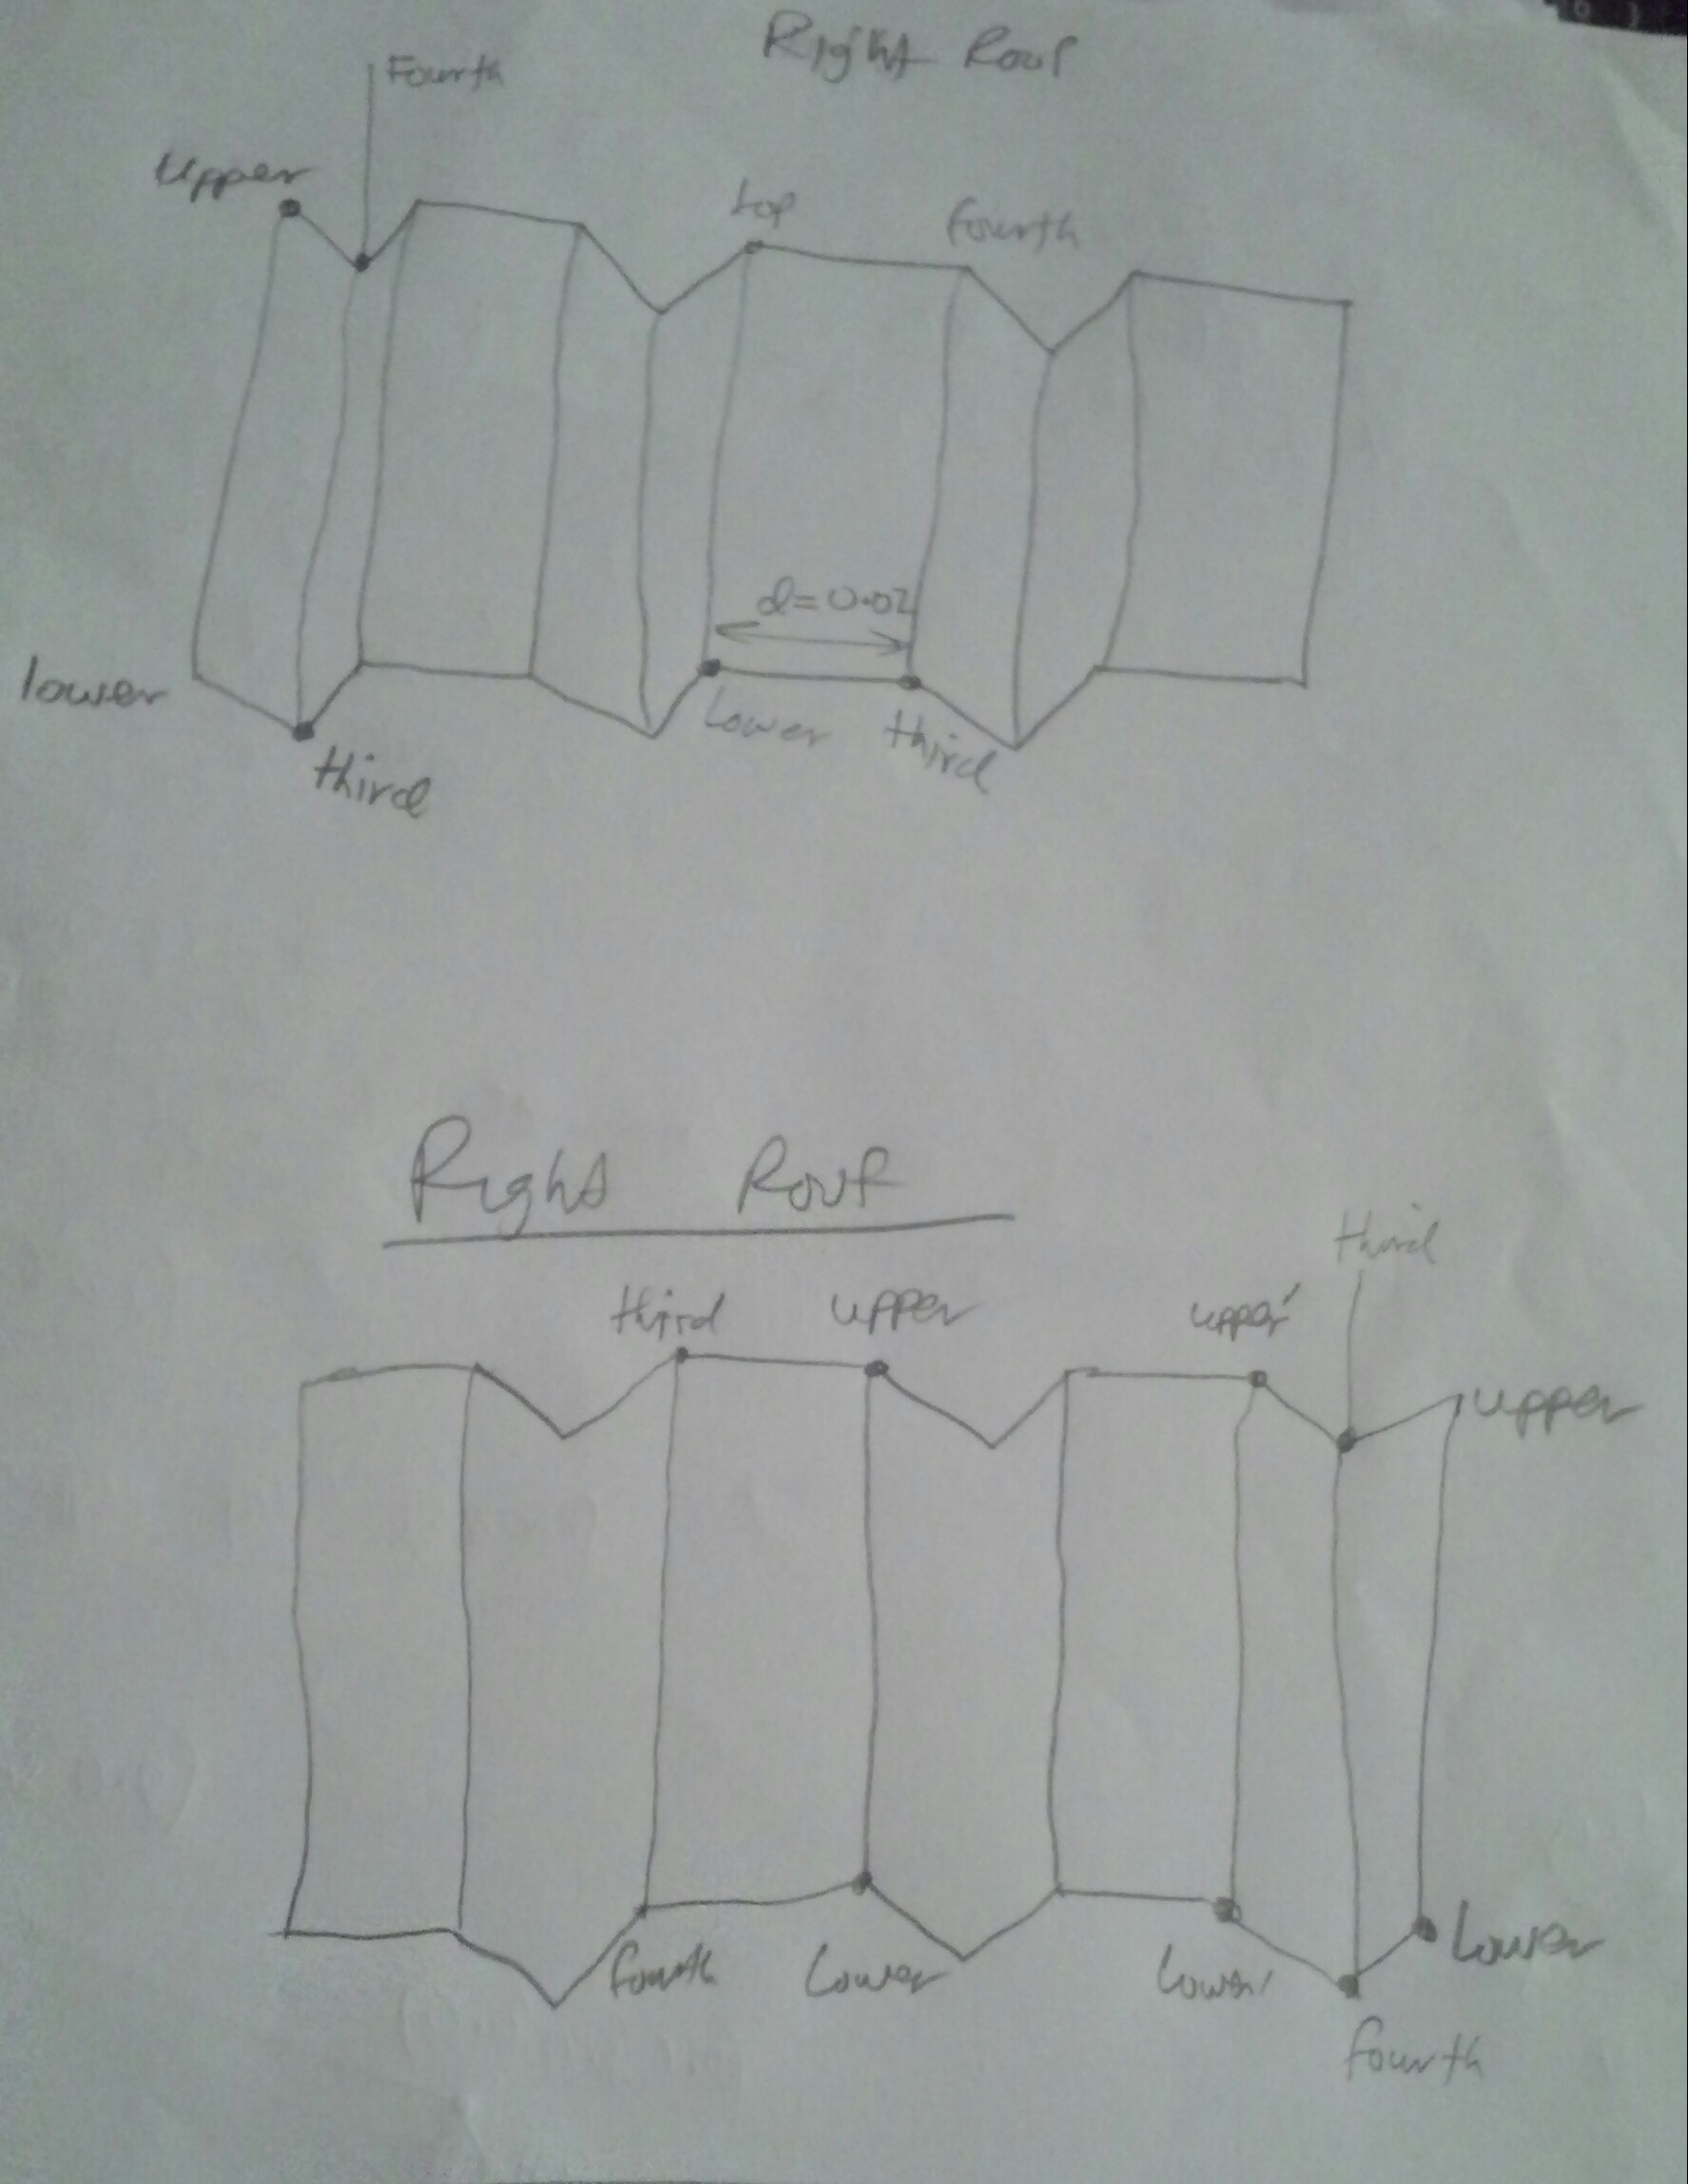 Right Rouf
Fourth
Upper
top
fourth
d=0.02
lower
Lower
third
third
Right Rouf
third
third
upper
upper
upper
fourth
Lower
Lower
Lower
fourth